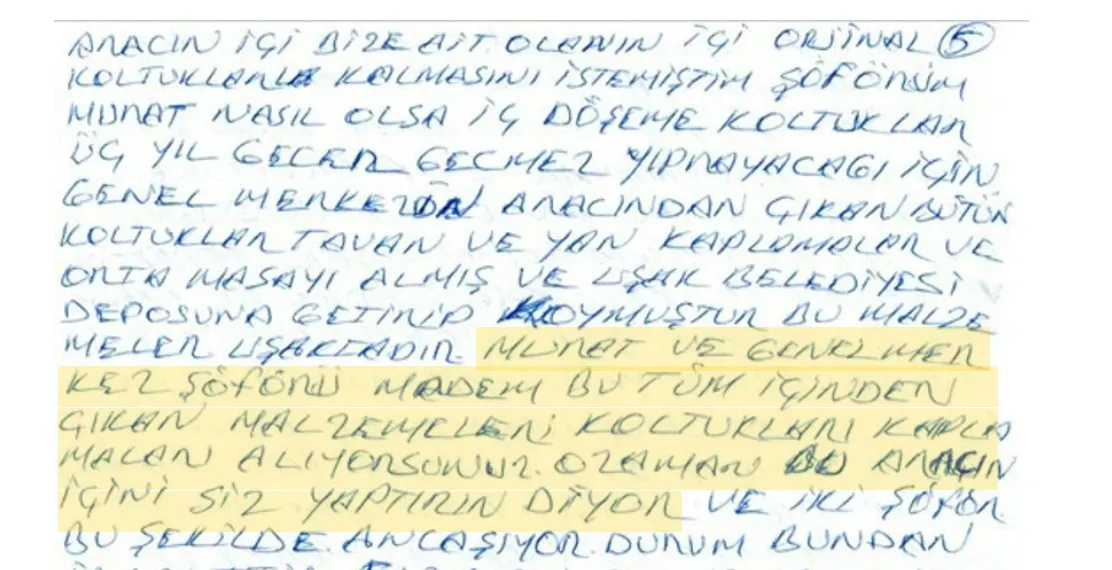 ARACIN İÇİ BİZE AİT OLANIN İÇİ ORJİNAL 5
KOLTUKLARLA KALMASINI İSTEMİŞTİM ŞÖFÖRÜM
MURAT NASIL OLSA İÇ DÖŞEME KOLTUKLAR
ÜÇ YIL GEÇER GEÇMEZ YIPRAYACAĞI İÇİN
GENEL MERKEZİN ARACINDAN ÇIKAN BÜTÜN
KOLTUKLAR TAVAN VE YAN KAPLAMALAR VE
ORTA MASAYI ALMIŞ VE UŞAK BELEDİYESİ
DEPOSUNA GETİRİP KOYMUŞTUR BU MALZE
MELER UŞAKTADIR. MURAT VE GENELMER
KEZ ŞÖFÖRÜ MADEM BU TÜM İÇİNDEN
ÇIKAN MALZEMELERİ KOLTUKLARI KAPLA
MALARI ALIYORSUNUZ. OZAMAN BU ARACIN
İÇİNİ SİZ YAPTIRIN DİYOR VE İKİ ŞÖFÖR
BU ŞEKİLDE ANLAŞIYOR. DURUM BUNDAN